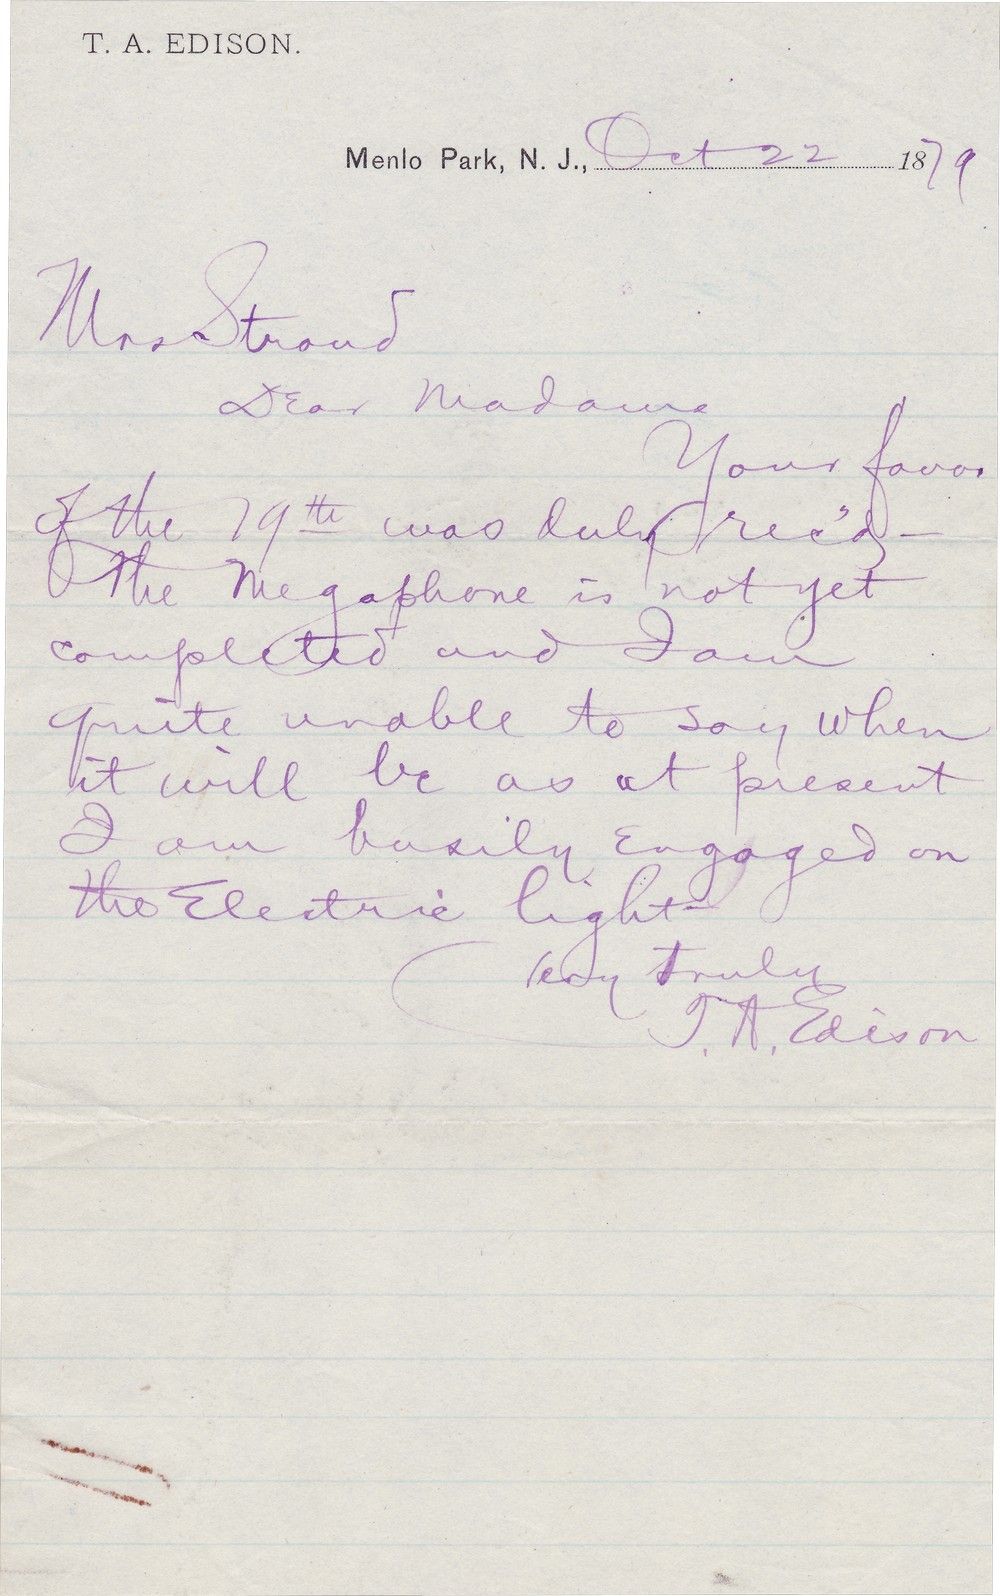 T. A. EDISON.
Menlo Park, N. J., Oct 22 1879
Mrs Stroud
Dear Madame
Your favor
of the 19th was duly rec'd—
The Megaphone is not yet
completed and I am
quite unable to say when
it will be as at present
I am busily engaged on
the Electric light—
Very truly
T. A. Edison